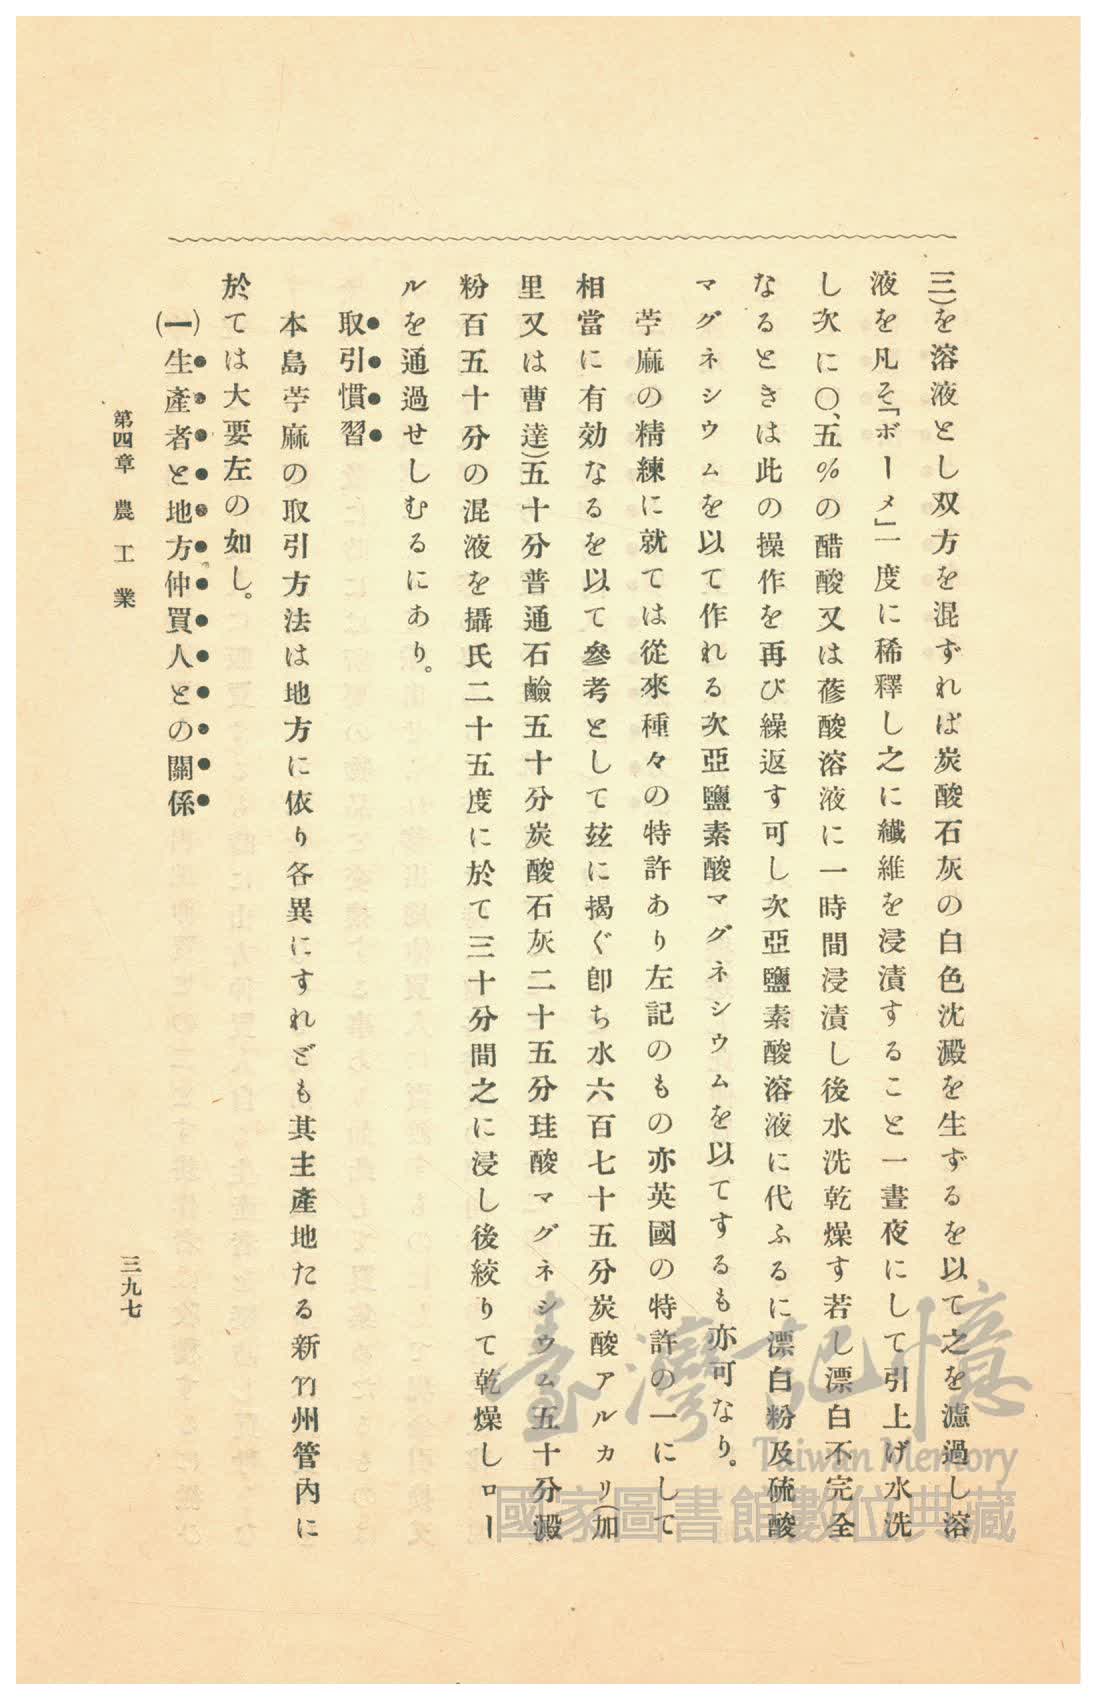 三)を溶液とし双方を混ずれば炭酸石灰の白色沈澱を生ずるを以て之を濾過し溶
液を凡そ「ボーメ」一度に稀釋し之に纎維を浸漬すること一晝夜にして引上げ水洗
し次に〇、五％の醋酸又は蓚酸溶液に一時間浸漬し後水洗乾燥す若し漂白不完全
なるときは此の操作を再び繰返す可し次亞鹽素酸溶液に代ふるに漂白粉及硫酸
マグネシウムを以て作れる次亞鹽素酸マグネシウムを以てするも亦可なり。
苧麻の精練に就ては從來種々の特許あり左記のもの亦英國の特許の一にして
相當に有効なるを以て參考として玆に揭ぐ卽ち水六百七十五分炭酸アルカリ(加
里又は曹達)五十分普通石鹼五十分炭酸石灰二十五分珪酸マグネシウム五十分澱
粉百五十分の混液を攝氏二十五度に於て三十分間之に浸し後絞りて乾燥しロー
ルを通過せしむるにあり。
取引慣習
本島苧麻の取引方法は地方に依り各異にすれども其主產地たる新竹州管內に
於ては大要左の如し。
(一)生產者と地方仲買人との關係
第四章 農工業
三九七
臺灣記憶
Taiwan Memory
國家圖書館數位典藏